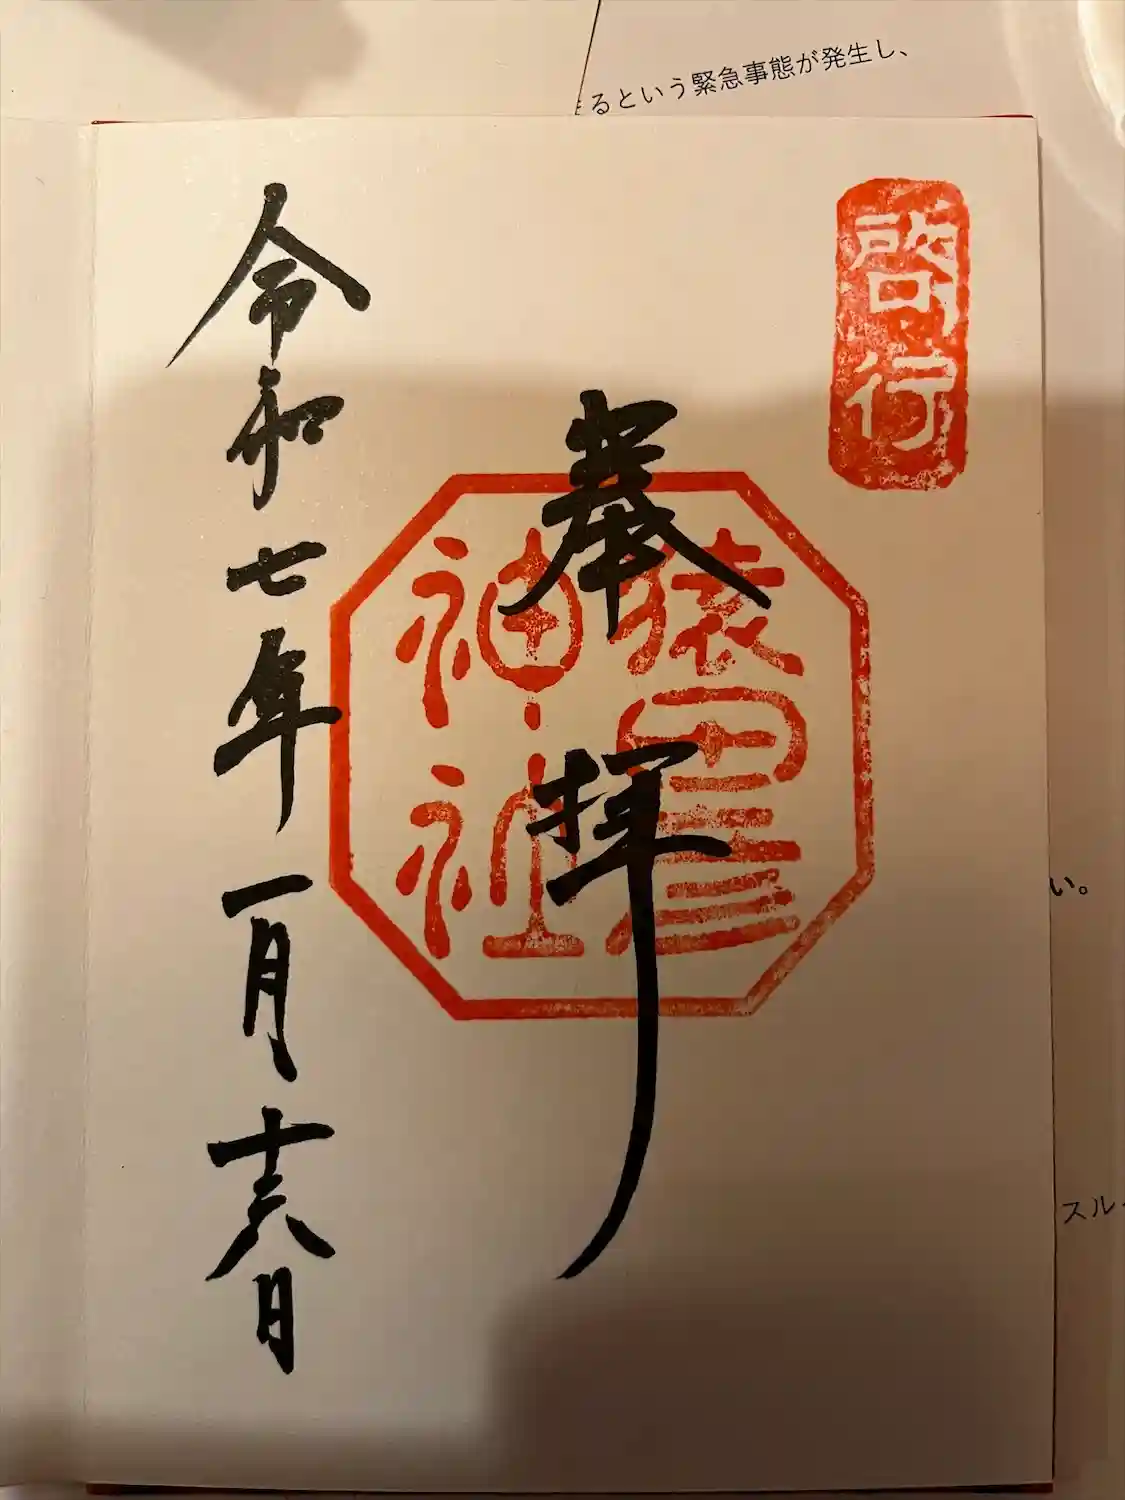 るという緊急事態が発生し、
啓行
奉拝
猿田彦
神社
令和七年一月十六日
い。
スル